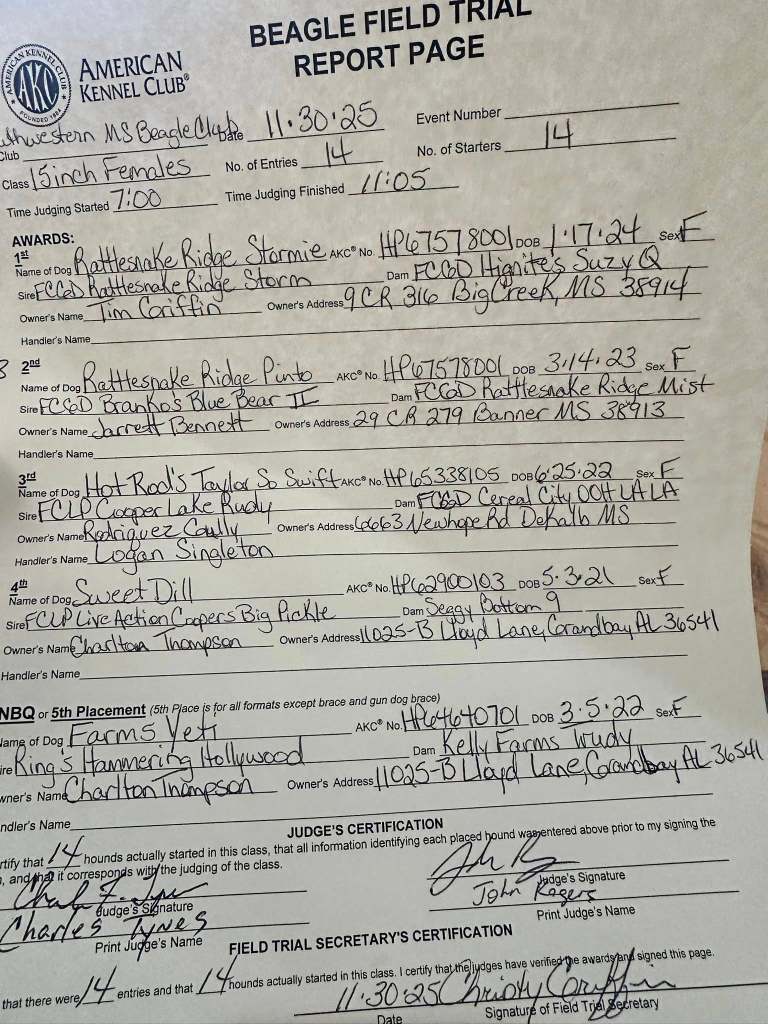 BEAGLE FIELD TRIAL
REPORT PAGE
AMERICAN KENNEL CLUB
AKC
FOUNDED 1884
AMERICAN
KENNEL CLUB®
Club uthwestern MS Beagle Club Date 11·30·25 Event Number
Class 15inch Females No. of Entries 14 No. of Starters 14
Time Judging Started 7:00 Time Judging Finished 11:05
AWARDS:
1st
Name of Dog Rattlesnake Ridge Stormie AKC® No. HP67578001 DOB 1·17·24 Sex F
Sire FCGD Rattlesnake Ridge Storm Dam FCGD Hignite's Suzy Q
Owner's Name Tim Griffin Owner's Address 9 CR 316 Big Creek, MS 38914
Handler's Name
2nd
Name of Dog Rattlesnake Ridge Pinto AKC® No. HP67578001 DOB 3·14·23 Sex F
Sire FCGD Branko's Blue Bear II Dam FCGD Rattlesnake Ridge Mist
Owner's Name Jarrett Bennett Owner's Address 29 CR 279 Banner MS 38913
Handler's Name
3rd
Name of Dog Hot Rod's Taylor So Swift AKC® No. HP65338105 DOB 6·25·22 Sex F
Sire FCLP Cooper Lake Rudy Dam FCGD Cereal City OOH LA LA
Owner's Name Rodriguez Cully Owner's Address 6663 Newhope Rd DeKalb MS
Handler's Name Logan Singleton
4th
Name of Dog Sweet Dill AKC® No. HP62900103 DOB 5·3·21 Sex F
Sire FCLP Live Action Coopers Big Pickle Dam Seggy Bottom 9
Owner's Name Charlton Thompson Owner's Address 11025-B Lloyd Lane, Grandbay, AL 36541
Handler's Name
NBQ or 5th Placement (5th Place is for all formats except brace and gun dog brace)
Name of Dog Farms Yeti AKC® No. HP64640701 DOB 3·5·22 Sex F
ire King's Hammering Hollywood Dam Kelly Farms Trudy
wner's Name Charlton Thompson Owner's Address 11025-B Lloyd Lane, Grandbay AL 36541
ndler's Name
JUDGE'S CERTIFICATION
rtify that 14 hounds actually started in this class, that all information identifying each placed hound was entered above prior to my signing the
, and that it corresponds with the judging of the class.
Judge's Signature Judge's Signature
Charles Tynes John Rogers
Print Judge's Name Print Judge's Name
FIELD TRIAL SECRETARY'S CERTIFICATION
that there were 14 entries and that 14 hounds actually started in this class. I certify that the judges have verified the awards and signed this page.
11·30·25 Christy Griffin
Date Signature of Field Trial Secretary